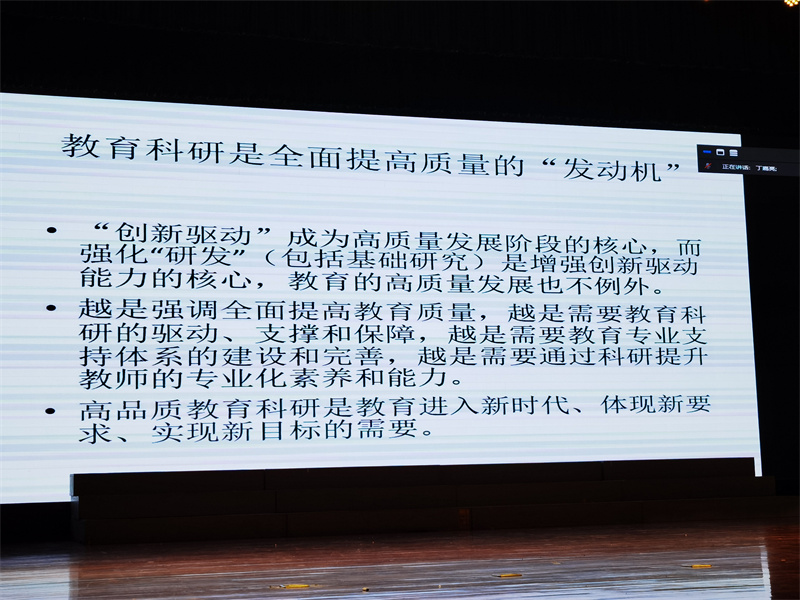 教育科研是全面提高质量的“发动机”
正在讲话：丁
• “创新驱动”成为高质量发展阶段的核心，而
强化“研发”（包括基础研究）是增强创新驱动
能力的核心，教育的高质量发展也不例外。
• 越是强调全面提高教育质量，越是需要教育科
研的驱动、支撑和保障，越是需要教育专业支
持体系的建设和完善，越是需要通过科研提升
教师的专业化素养和能力。
• 高品质教育科研是教育进入新时代、体现新要
求、实现新目标的需要。